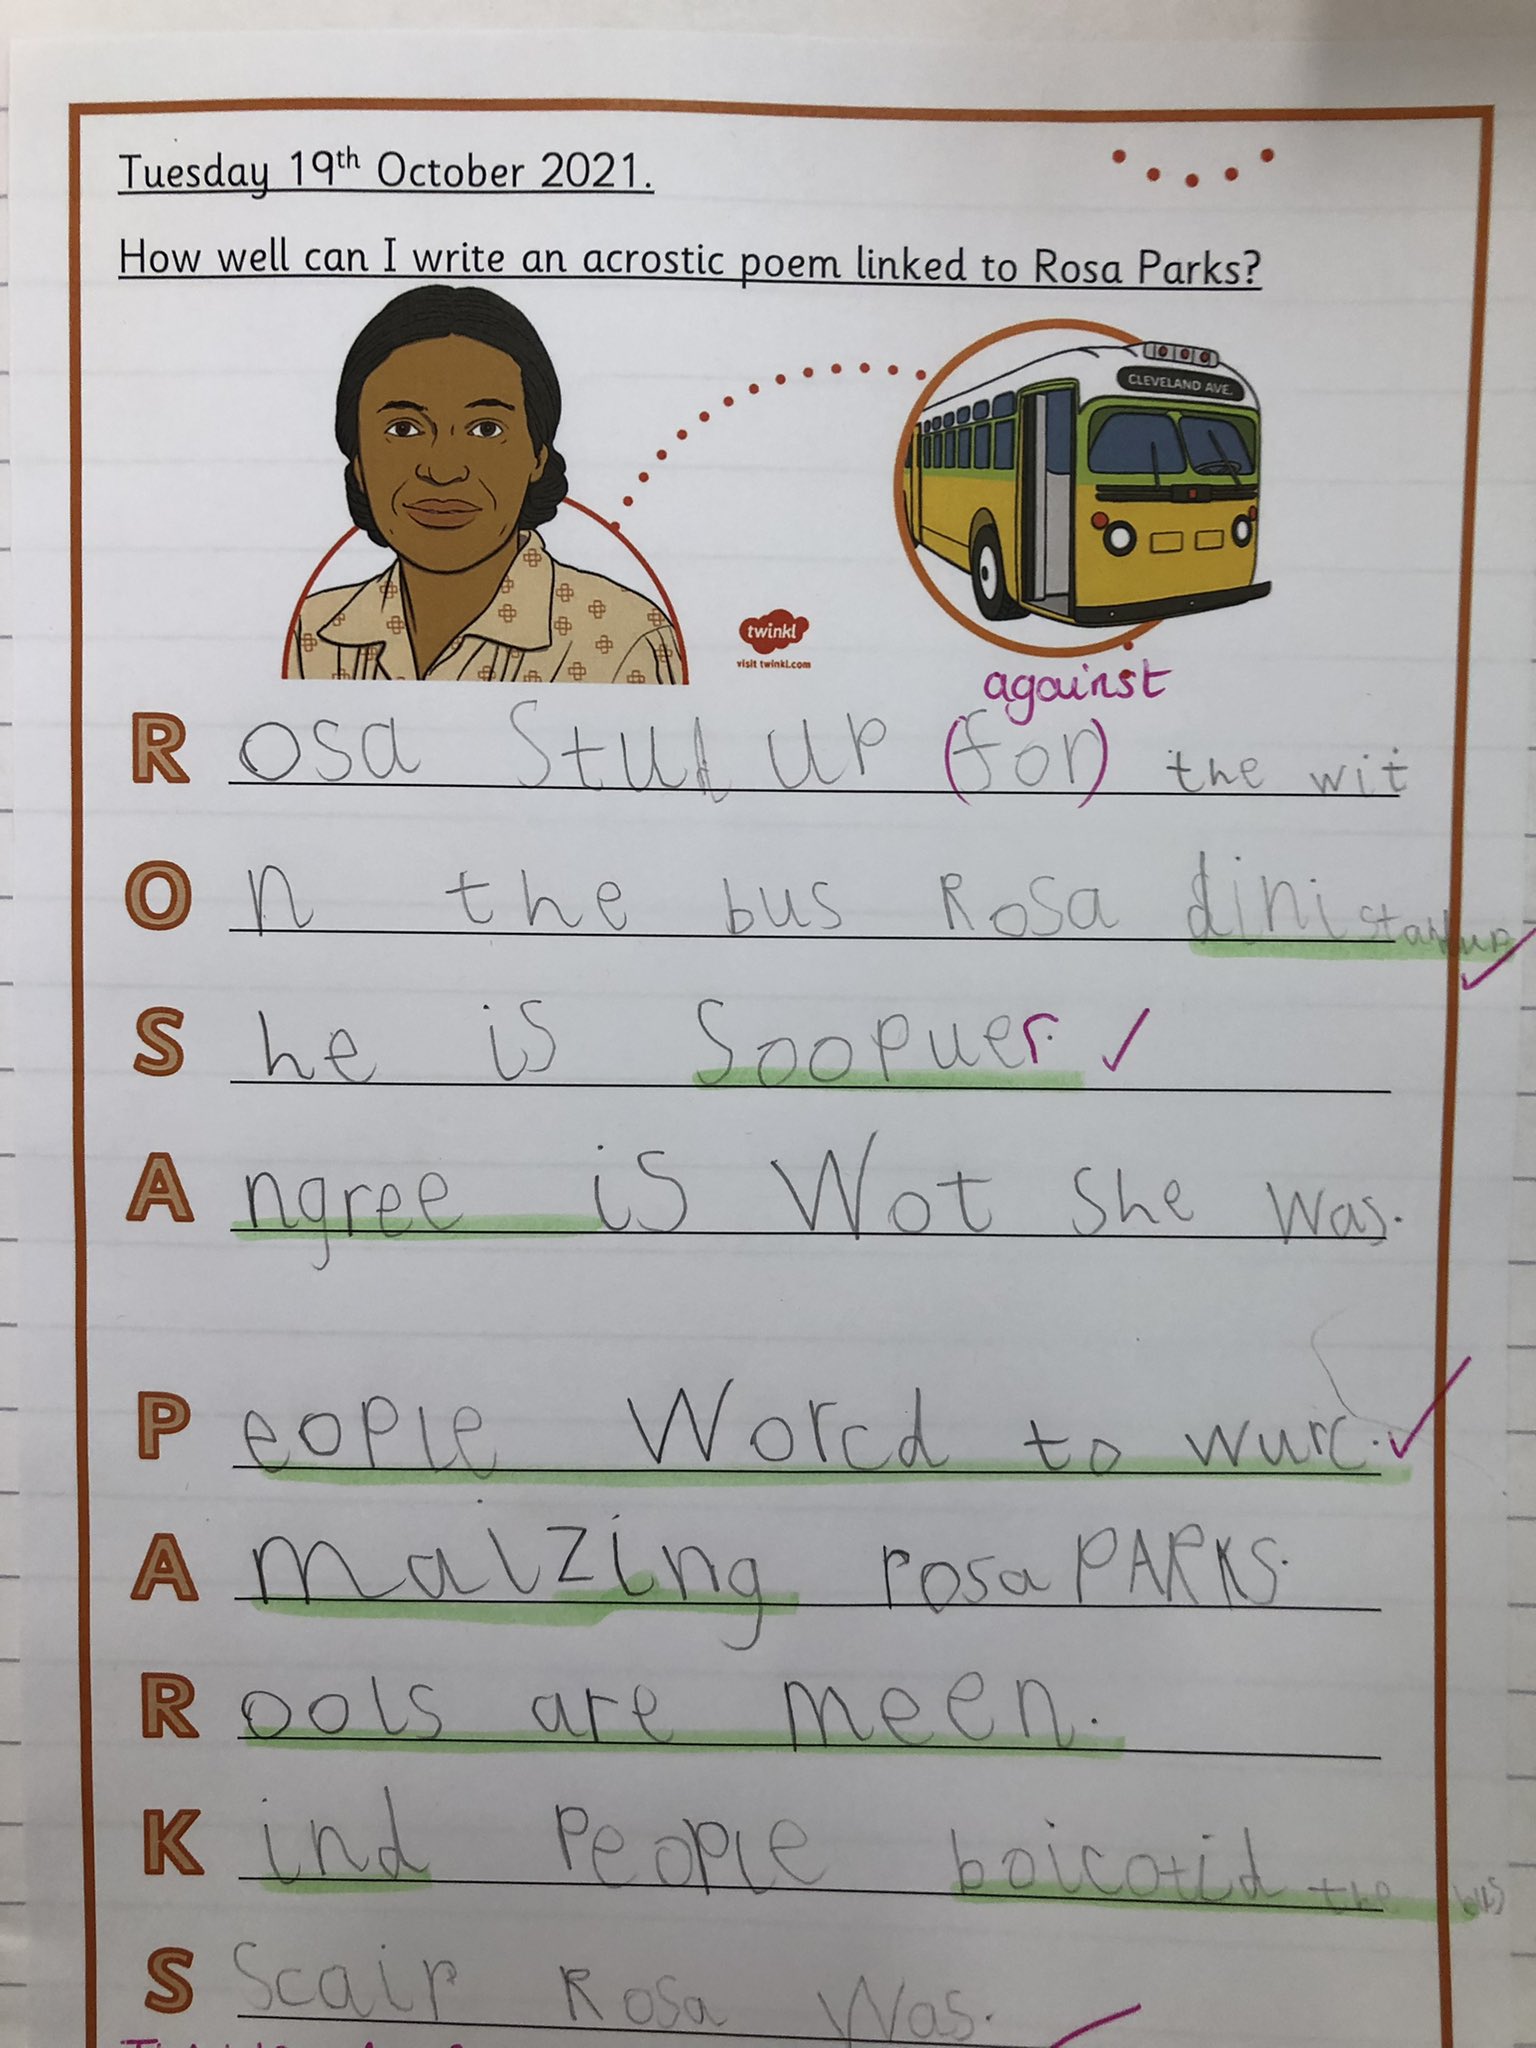 Tuesday 19th October 2021.
How well can I write an acrostic poem linked to Rosa Parks?
CLEVELAND AVE.
twinkl
visit twinkl.com
against
R osa Stud up (for) the wit
O n the bus Rosa dini stand up
S he is Soopuer.
A ngree is Wot she was.
P eople Worcd to wurc.
A maizing rosa PARKS.
R ools are meen.
K ind People boicotid the bus
S Scair Rosa Was.